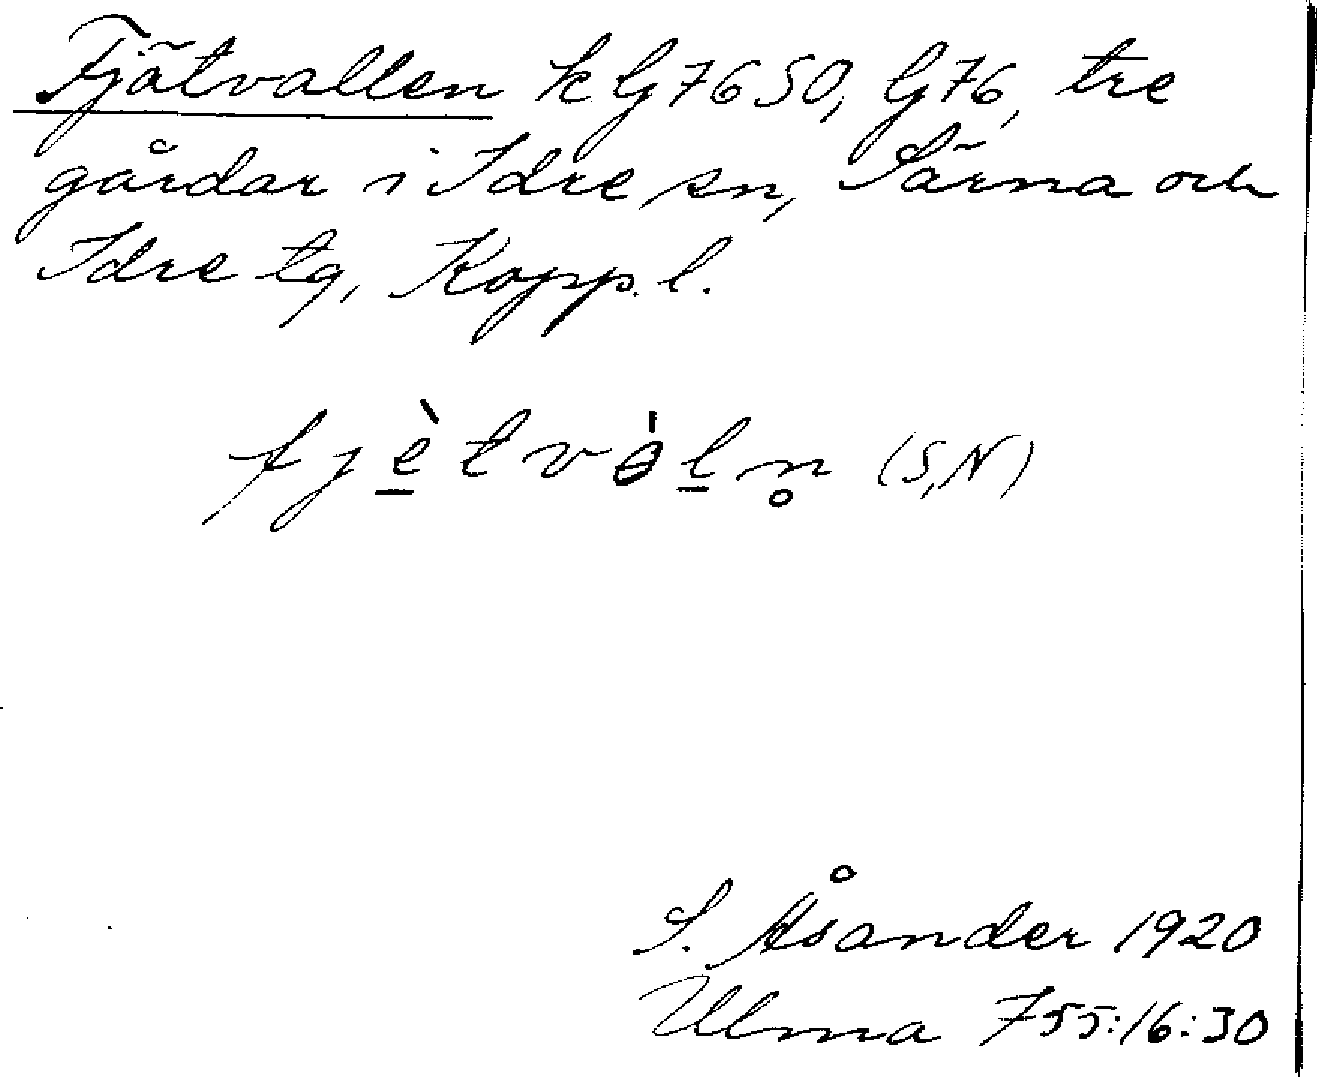 Fjätvallen k G7650, G76, tre
gårdar i Idre sn, Särna och
Idre tg, Kopp. l.
fjè̱tvòḻn̥ (S,N)
S. Åsander 1920
Ulma 755:16:30